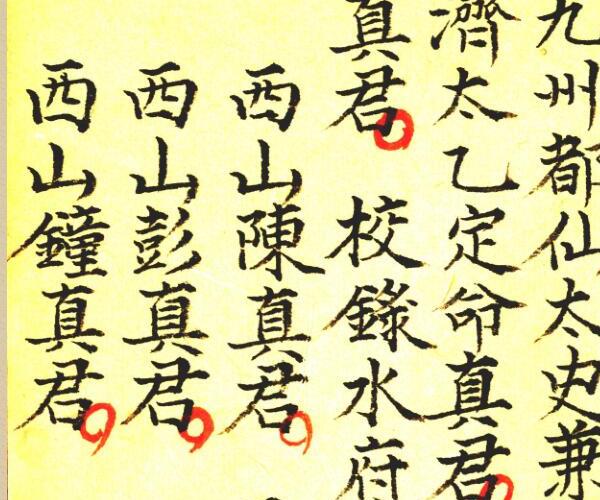 九州都仙太史兼
濟太乙定命真君
真君 校錄水府
西山陳真君
西山彭真君
西山鐘真君